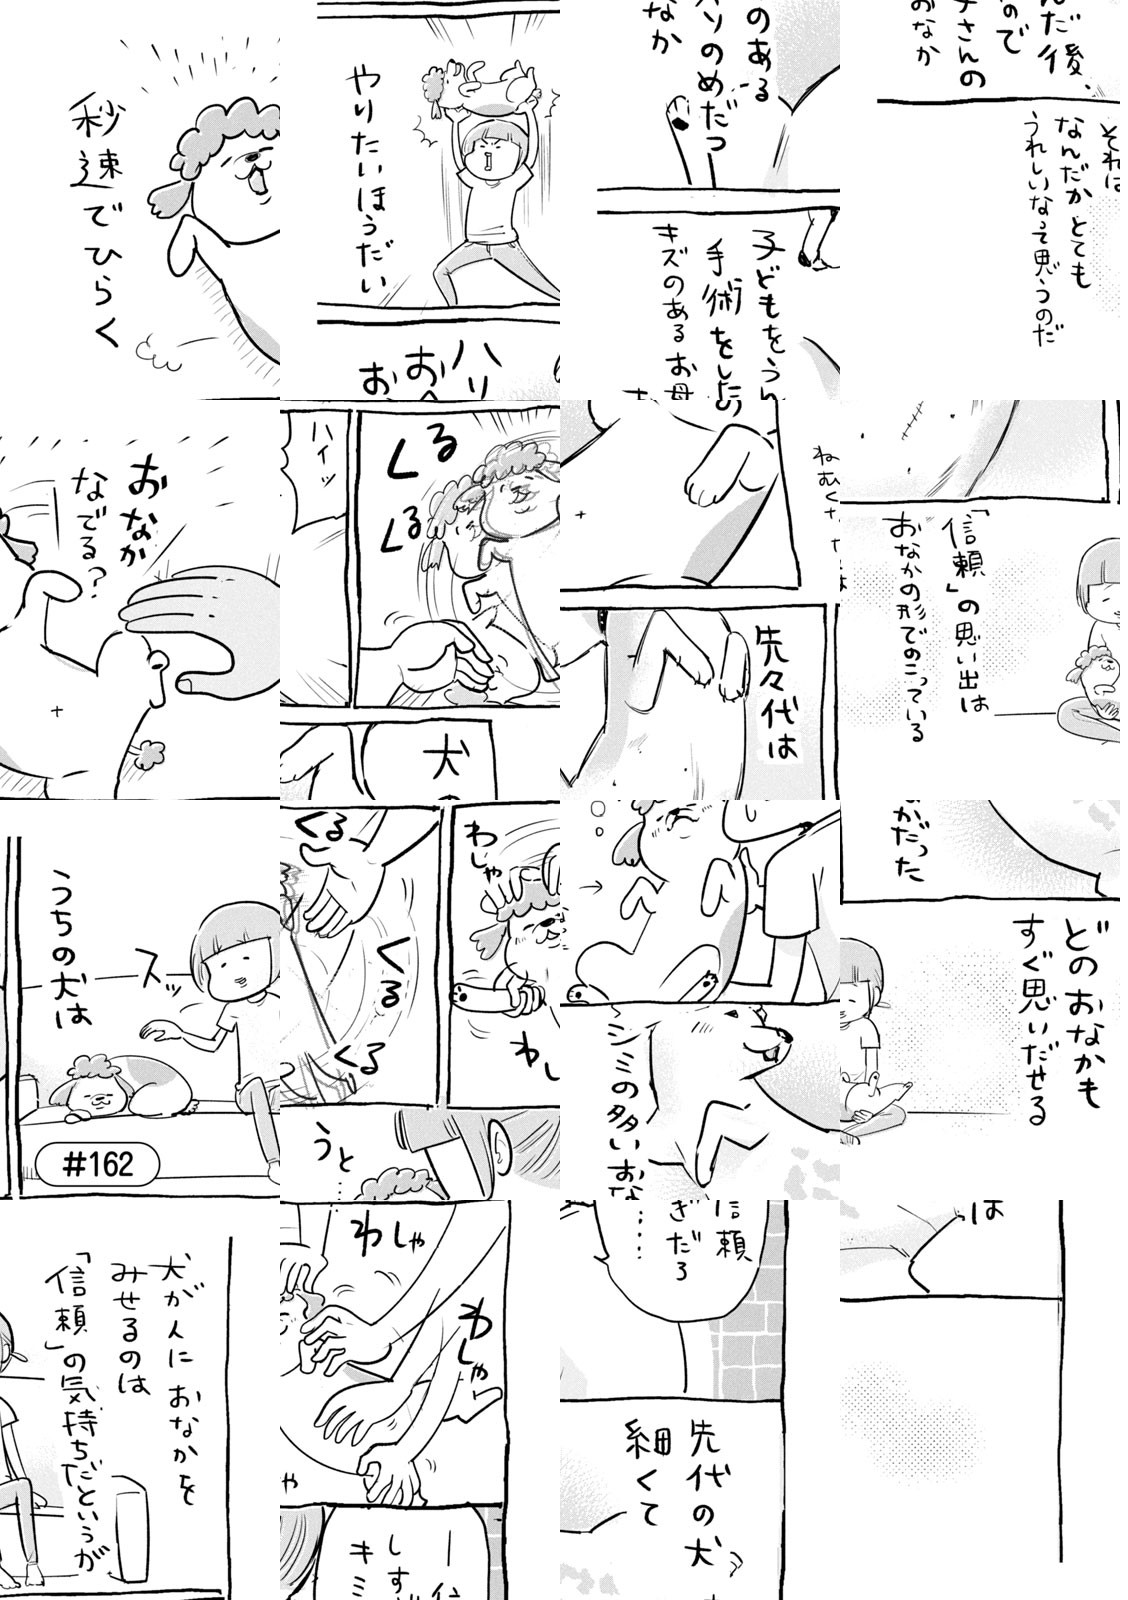 秒速でひらく
やりたいほうだい
のある
のめだつ
なか
子どもをうん
手術をした
キズのあるお母
んだ後、
ので
さんの
おなか
それは
なんだかとても
うれしいなって思うのだ
おなか
なでる？
ハイッ
くる
くる
犬
先々代は
「信頼」の思い出は
おなかの形でのこっている
うちの犬は
スッ
#162
くる
くる
くる
うと……
わしゃ
わし
シミの多いおな
かだった
どのおなかも
すぐ思いだせる
犬が人におなかを
みせるのは
「信頼」の気持ちだというが
わしゃ
わしゃ
ゃ
しす
キミ
信頼
ぎだろ
……
先代の犬
細くて
は